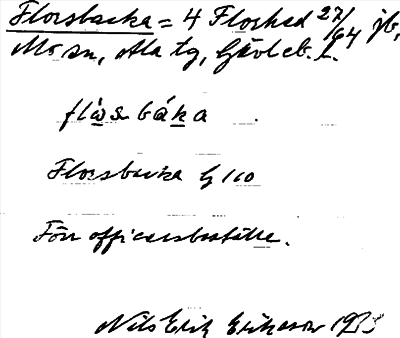 Florsbacka = 4 Florhed 27/64 jb,
Mo sn, Ala tg, Gävleb. l.
flåsbáka
Florsbacka G 110
Förr officersboställe.
Nils Erik Eriksson 1933